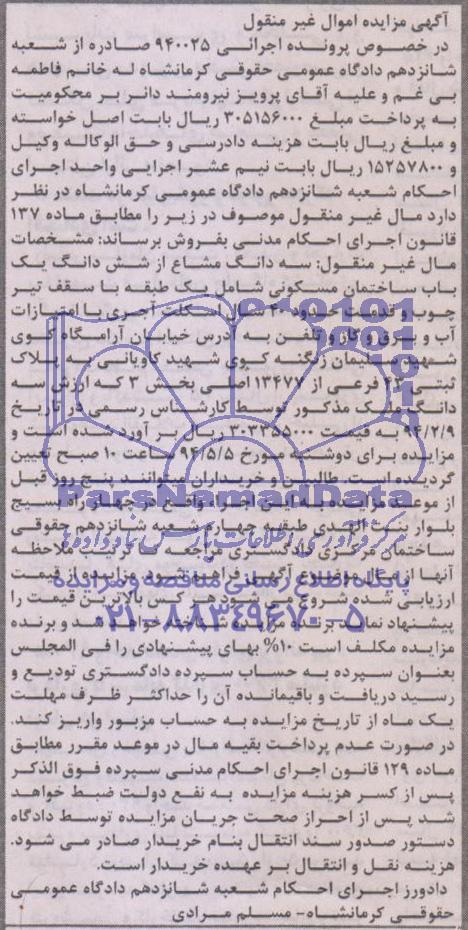 آگهی مزایده اموال غیر منقول
در خصوص پرونده اجرائی ۹۴۰۰۲۵ صادره از شعبه
شانزدهم دادگاه عمومی حقوقی کرمانشاه له خانم فاطمه
بی غم و علیه آقای پرویز نیرومند دائر بر محکومیت
به پرداخت مبلغ ۳۰۵۱۵۶۰۰۰ ریال بابت اصل خواسته
و مبلغ ریال بابت هزینه دادرسی و حق الوکاله وکیل
و ۱۵۲۵۷۸۰۰ ریال بابت نیم عشر اجرایی واحد اجرای
احکام شعبه شانزدهم دادگاه عمومی کرمانشاه در نظر
دارد مال غیر منقول موصوف در زیر را مطابق ماده ۱۳۷
قانون اجرای احکام مدنی بفروش برساند: مشخصات
مال غیر منقول: سه دانگ مشاع از شش دانگ یک
باب ساختمان مسکونی شامل یک طبقه با سقف تیر
چوب و قدمت حدود ۴۰ سال اسکلت آجری با امتیازات
آب و برق و گاز و تلفن به آدرس خیابان آرامگاه کوی
شهید سلیمان زنگنه کوی شهید کاویانی به پلاک
ثبتی ۴۳ فرعی از ۱۳۴۷۷ اصلی بخش ۳ که ارزش سه
دانگ ملک مذکور توسط کارشناس رسمی در تاریخ
۹۴/۲/۹ به قیمت ۳۰۳۳۵۵۰۰۰ ریال بر آورد شده است و
مزایده برای دوشنبه مورخ ۹۴/۵/۵ ساعت ۱۰ صبح تعیین
گردیده است. طالبین و خریداران میتوانند پنج روز قبل
از موعد مزایده به این اجراء واقع در چهار راه بسیج
بلوار بنت الهدی طبقه چهارم شعبه شانزدهم حقوقی
ساختمان مرکزی دادگستری مراجعه تا ترتیب ملاحظه
آنها از مال موضوع آگهی فراهم شود. مزایده از قیمت
ارزیابی شده شروع می شود هر کس بالاترین قیمت را
پیشنهاد نماید برنده مزایده شناخته خواهد شد و برنده
مزایده مکلف است ۱۰% بهای پیشنهادی را فی المجلس
بعنوان سپرده به حساب سپرده دادگستری تودیع و
رسید دریافت و باقیمانده آن را حداکثر ظرف مهلت
یک ماه از تاریخ مزایده به حساب مزبور واریز کند.
در صورت عدم پرداخت بقیه مال در موعد مقرر مطابق
ماده ۱۲۹ قانون اجرای احکام مدنی سپرده فوق الذکر
پس از کسر هزینه مزایده به نفع دولت ضبط خواهد
شد پس از احراز صحت جریان مزایده توسط دادگاه
دستور صدور سند انتقال بنام خریدار صادر می شود.
هزینه نقل و انتقال بر عهده خریدار است.
دادورز اجرای احکام شعبه شانزدهم دادگاه عمومی
حقوقی کرمانشاه- مسلم مرادی
ParsNamadData
مرکز فرآوری اطلاعات پارس نماد داده ها
پایگاه اطلاع رسانی مناقصه و مزایده
۰۲۱-۸۸۳۴۹۶۷۰-۵